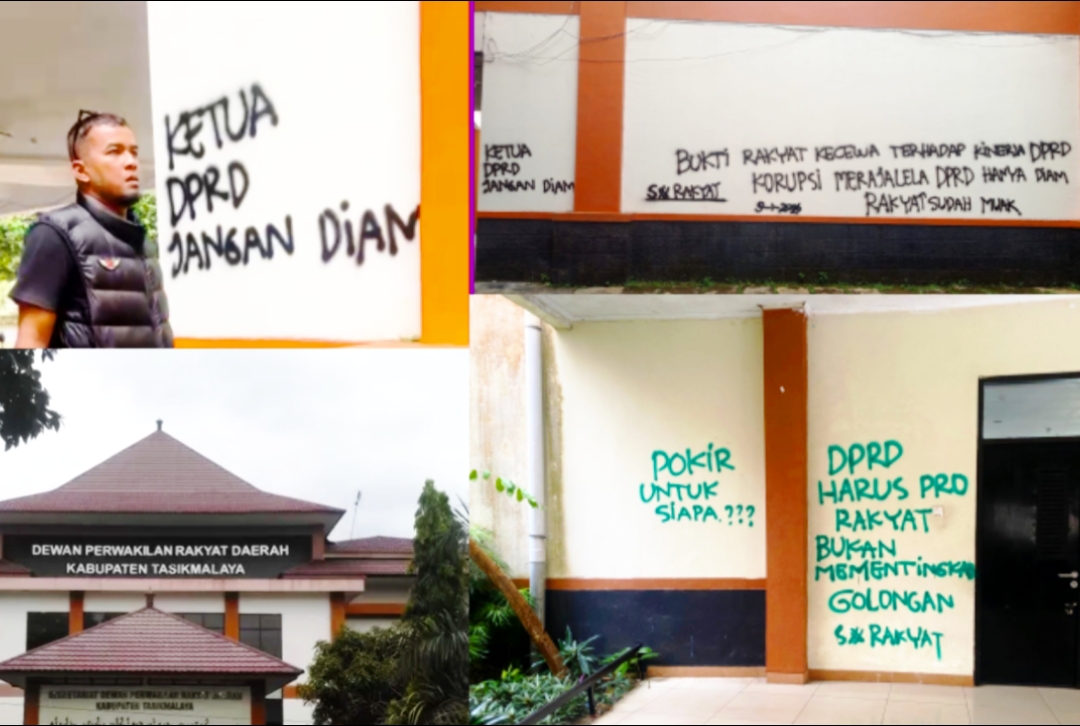 KETUA
DPRD
JANGAN DIAM
KETUA
DPRD
JANGAN DIAM
BUKTI RAKYAT KECEWA TERHADAP KINERJA DPRD
KORUPSI MERAJALELA DPRD HANYA DIAM
RAKYAT SUDAH MUAK
RAKYAT
DEWAN PERWAKILAN RAKYAT DAERAH
KABUPATEN TASIKMALAYA
SEKRETARIAT DEWAN PERWAKILAN RAKYAT DAERAH
KABUPATEN TASIKMALAYA
POKIR
UNTUK
SIAPA.???
DPRD
HARUS PRO
RAKYAT
BUKAN
MEMENTINGKAN
GOLONGAN
RAKYAT